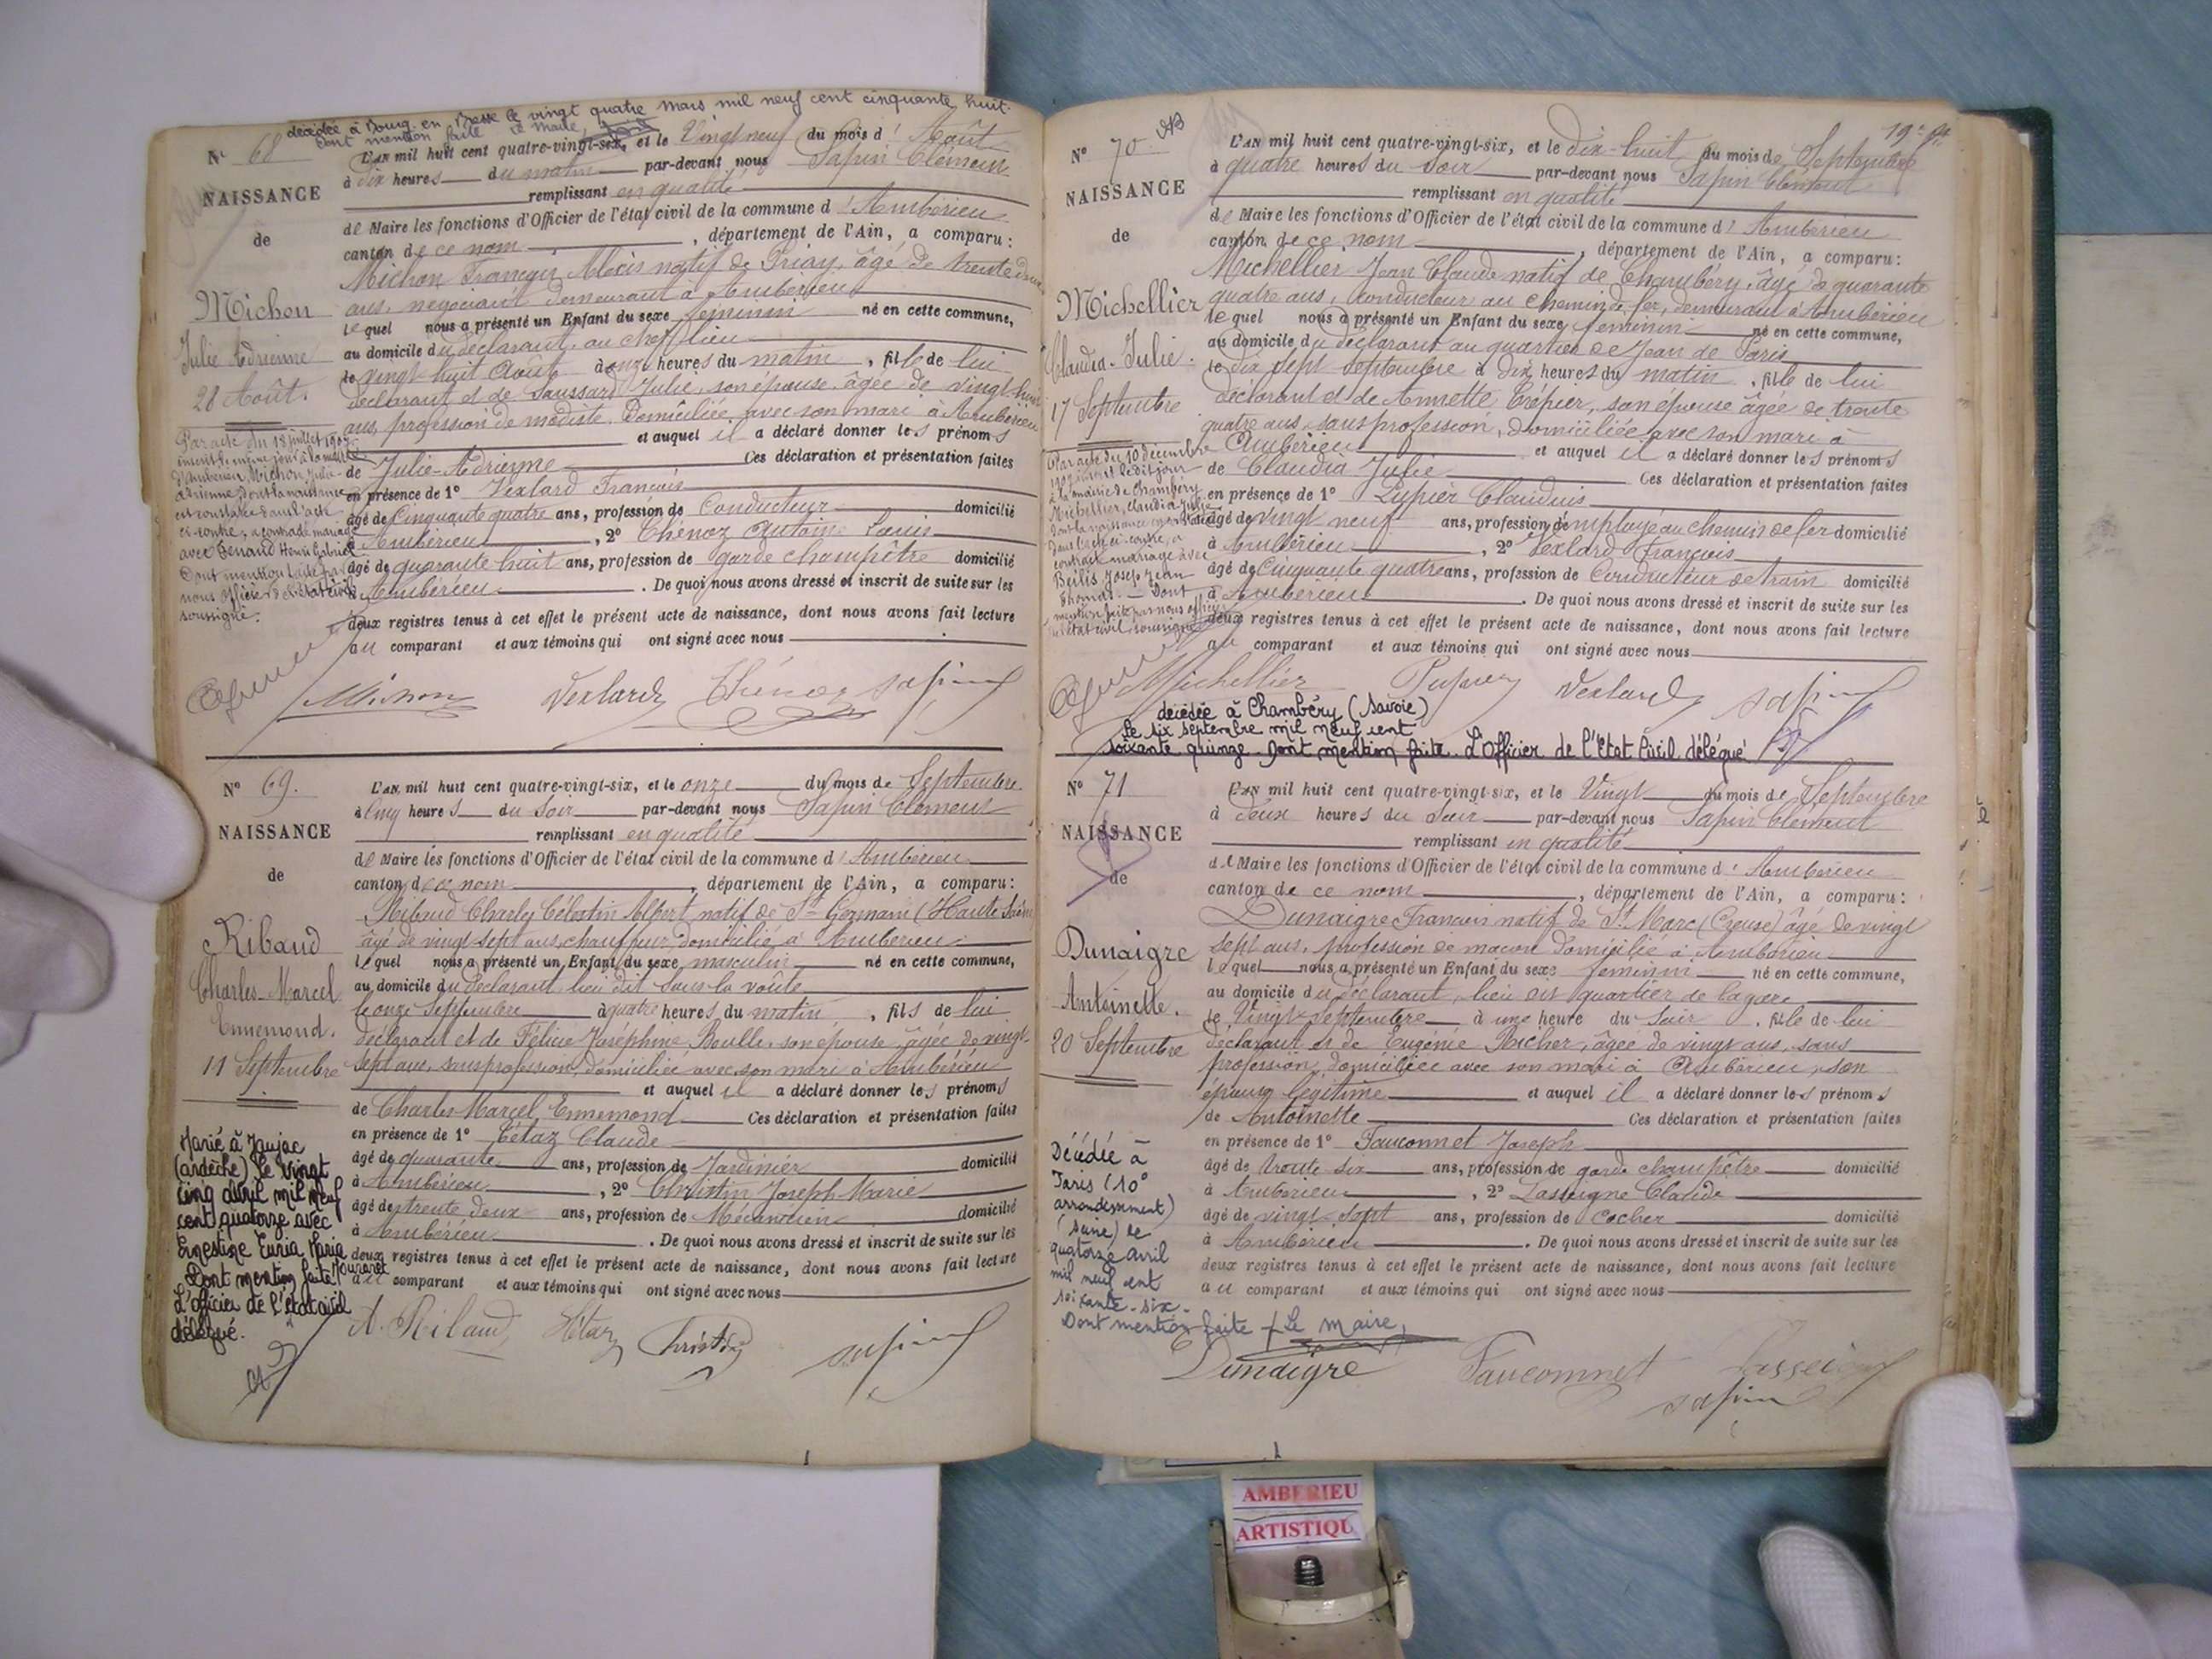 décédée à Bourg en Bresse le vingt quatre mars mil neuf cent cinquante huit.
dont mention faite Le Maire,
N° 68
NAISSANCE
de
Michon
Julie Adrienne
28 Août.
Par acte du 18 juillet
inscrit le même jour à la mairie
d'Ambérieu, Michon Julie
Adrienne dont la naissance
est constatée dans l'acte
ci-contre, a contracté mariage
avec Henri Gabriel
Dont mention faite par
nous officier de l'état civil
soussigné.
L'AN mil huit cent quatre-vingt-six, et le Vingt neuf du mois d'Août
à dix heures du matin par-devant nous Sapin Clément
remplissant en qualité
de Maire les fonctions d'Officier de l'état civil de la commune d'Ambérieu
canton de ce nom, département de l'Ain, a comparu:
Michon François Alexis natif de Priay, âgé de trente deux
ans, négociant demeurant à Ambérieu
lequel nous a présenté un Enfant du sexe féminin né en cette commune,
au domicile du déclarant, au chef lieu
le vingt huit Août à onze heures du matin, fille de lui
déclarant et de Saussard Julie, son épouse, âgée de vingt huit
ans, profession de modiste, domiciliée avec son mari à Ambérieu
et auquel il a déclaré donner les prénoms
de Julie-Adrienne Ces déclaration et présentation faites
en présence de 1° Vexlard François
âgé de Cinquante quatre ans, profession de Conducteur domicilié
à Ambérieu, 2° Thénoz Antoine Louis
âgé de quarante huit ans, profession de garde champêtre domicilié
à Ambérieu. De quoi nous avons dressé et inscrit de suite sur les
deux registres tenus à cet effet le présent acte de naissance, dont nous avons fait lecture
au comparant et aux témoins qui ont signé avec nous
Michon Vexlard Thénoz Sapin
N° 69.
NAISSANCE
de
Ribaud
Charles-Marcel
Ennemond.
11 Septembre
Marié à Jaujac
(ardèche) le vingt
cinq avril mil neuf
cent quatorze avec
Ernestine Maria
Dont mention faite
L'officier de l'état civil
délégué.
L'AN mil huit cent quatre-vingt-six, et le onze du mois de Septembre
à Cinq heures du Soir par-devant nous Sapin Clément
remplissant en qualité
de Maire les fonctions d'Officier de l'état civil de la commune d'Ambérieu
canton de ce nom, département de l'Ain, a comparu:
Ribaud Charles Célestin Albert natif de St Germain (Haute Saône
âgé de vingt sept ans, chauffeur domicilié à Ambérieu
lequel nous a présenté un Enfant du sexe masculin né en cette commune,
au domicile du déclarant, lieu dit sous la voûte
le onze Septembre à quatre heures du matin, fils de lui
déclarant et de Félicie Joséphine Boulle, son épouse âgée de vingt
sept ans, sans profession, domiciliée avec son mari à Ambérieu
et auquel il a déclaré donner les prénoms
de Charles-Marcel Ennemond Ces déclaration et présentation faites
en présence de 1° Tétaz Claude
âgé de quarante ans, profession de Jardinier domicilié
à Ambérieu, 2° Christin Joseph-Marie
âgé de trente deux ans, profession de Mécanicien domicilié
à Ambérieu. De quoi nous avons dressé et inscrit de suite sur les
deux registres tenus à cet effet le présent acte de naissance, dont nous avons fait lecture
au comparant et aux témoins qui ont signé avec nous
A. Ribaud Tétaz Christin Sapin
N° 70
NAISSANCE
de
Michellier
Claudia-Julie.
17 Septembre
Par acte du 10 décembre
à la mairie de Chambéry
Michellier, Claudia Julie
dont la naissance est constatée
dans l'acte ci-contre, a
contracté mariage avec
Joseph Jean
Thomas. Dont
mention faite par nous officier
de l'état civil soussigné
19e
L'AN mil huit cent quatre-vingt-six, et le dix-huit du mois de Septembre
à quatre heures du soir par-devant nous Sapin Clément
remplissant en qualité
de Maire les fonctions d'Officier de l'état civil de la commune d'Ambérieu
canton de ce nom, département de l'Ain, a comparu:
Michellier Jean Claude natif de Chambéry, âgé de quarante
quatre ans, conducteur au chemin de fer, demeurant à Ambérieu
lequel nous a présenté un Enfant du sexe féminin né en cette commune,
au domicile du déclarant au quartier de Jean de Paris
le dix sept septembre à dix heures du matin, fille de lui
déclarant et de Annette Crépier, son épouse âgée de trente
quatre ans, sans profession, domiciliée avec son mari à
Ambérieu et auquel il a déclaré donner les prénoms
de Claudia Julie Ces déclaration et présentation faites
en présence de 1° Pupier Claudius
âgé de vingt neuf ans, profession d'employé au chemin de fer domicilié
à Ambérieu, 2° Vexlard François
âgé de Cinquante quatre ans, profession de Conducteur de train domicilié
à Ambérieu. De quoi nous avons dressé et inscrit de suite sur les
deux registres tenus à cet effet le présent acte de naissance, dont nous avons fait lecture
au comparant et aux témoins qui ont signé avec nous
Michellier Pupier Vexlard Sapin
décédée à Chambéry (Savoie)
le six septembre mil neuf cent
soixante quinze. Dont mention faite. L'Officier de l'Etat Civil délégué
N° 71
NAISSANCE
de
Dunaigre
Antoinette.
20 Septembre
Décédée à
Paris (10°
arrondissement)
(Seine) le
quatorze avril
mil neuf cent
soixante-six-
Dont mention faite Le Maire,
L'AN mil huit cent quatre-vingt-six, et le Vingt du mois de Septembre
à deux heures du Soir par-devant nous Sapin Clément
remplissant en qualité
de Maire les fonctions d'Officier de l'état civil de la commune d'Ambérieu
canton de ce nom, département de l'Ain, a comparu:
Dunaigre François natif de St Marc (Creuse) âgé de vingt
sept ans, profession de maçon domicilié à Ambérieu
lequel nous a présenté un Enfant du sexe féminin né en cette commune,
au domicile du déclarant, lieu dit quartier de la gare
le Vingt Septembre à une heure du Soir, fille de lui
déclarant et de Eugénie Richer, âgée de vingt ans, sans
profession, domiciliée avec son mari à Ambérieu, son
épouse légitime et auquel il a déclaré donner les prénoms
de Antoinette Ces déclaration et présentation faites
en présence de 1° Fauconnet Joseph
âgé de trente six ans, profession de garde champêtre domicilié
à Ambérieu, 2° Lasseigne Claude
âgé de vingt sept ans, profession de Cocher domicilié
à Ambérieu. De quoi nous avons dressé et inscrit de suite sur les
deux registres tenus à cet effet le présent acte de naissance, dont nous avons fait lecture
au comparant et aux témoins qui ont signé avec nous
Dunaigre Fauconnet Lasseigne
Sapin
AMBERIEU
ARTISTIQU